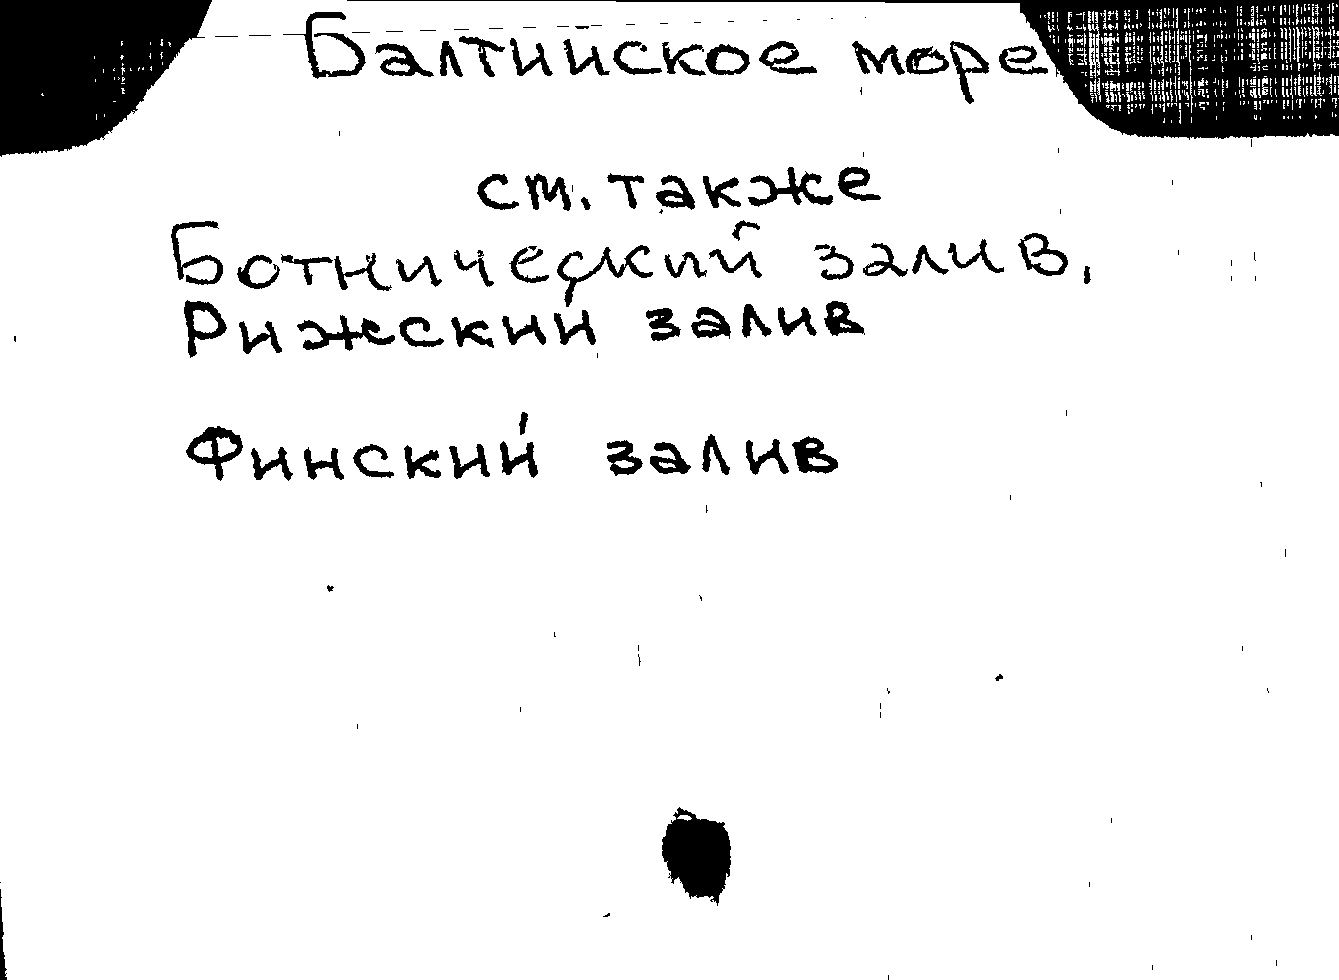 Балтийское море
см. также
Ботнический залив,
Рижский залив
Финский залив